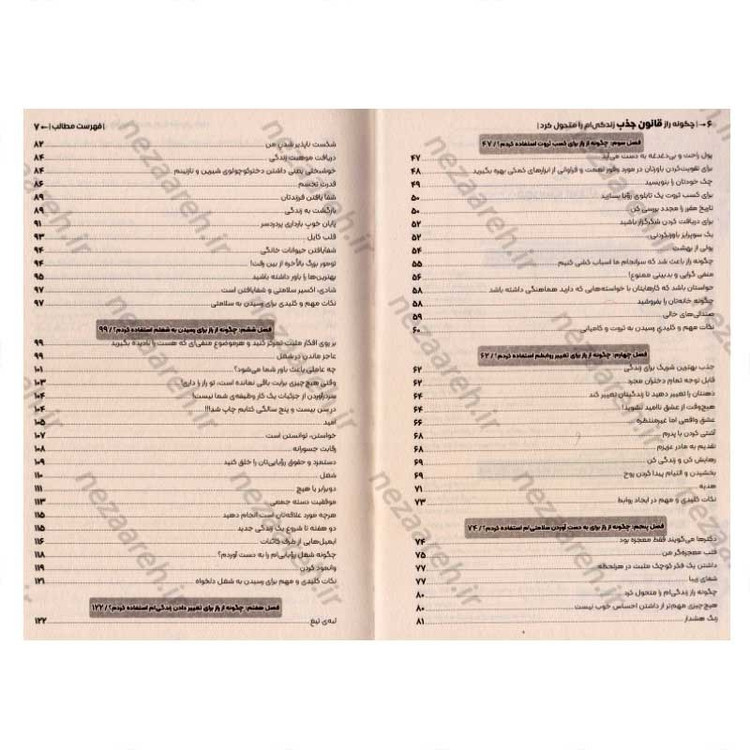 ۶ → | چگونه راز قانون جذب زندگی‌ام را متحول کرد |
فصل سوم: چگونه از راز برای کسب ثروت استفاده کردم؟ / ۴۷
پول راحت و بی‌دغدغه به دست می‌آید ۴۷
برای تقویت‌کردن باورتان در مورد وفور نعمت و فراوانی از ابزارهای کمکی بهره بگیرید ۴۸
چک خودتان را بنویسید ۴۹
برای کسب ثروت یک تابلوی رؤیا بسازید ۵۰
تاریخ مقرر را مجدد بررسی کن ۵۰
برای دریافت کردن شکرگزار باشید ۵۲
یک سورپرایز باورنکردنی ۵۲
پولی از بهشت ۵۴
چگونه راز باعث شد که سرانجام ما اسباب کشی کنیم ۵۵
منفی گرایی و بدبینی ممنوع! ۵۶
حواستان باشد که کارهایتان با خواسته‌هایی که دارید هماهنگی داشته باشد ۵۸
چگونه خانه‌تان را بفروشید ۵۸
صندلی‌های خالی ۵۹
نکات مهم و کلیدی رسیدن به ثروت و کامیابی ۶۰
فصل چهارم: چگونه از راز برای تغییر روابطم استفاده کردم؟ / ۶۲
جذب بهترین شریک برای زندگی ۶۲
قابل توجه تمام دختران مجرد ۶۲
ذهنتان را تغییر دهید تا زندگیتان تغییر کند ۶۴
هیچ‌وقت از عشق ناامید نشوید! ۶۴
عشق واقعی اما غیرمنتظره ۶۶
آشتی کردن با پدرم ۶۸
تقدیم به مادر عزیزم ۶۸
رهایش کن و زندگی کن ۶۹
بخشیدن و التیام پیدا کردن روح ۶۹
هدیه ۷۱
نکات کلیدی و مهم در ایجاد روابط ۷۳
فصل پنجم: چگونه از راز برای به دست آوردن سلامتی‌ام استفاده کردم؟ / ۷۴
دکترها می‌گویند فقط معجزه بود ۷۴
قلب معجزه‌گر من ۷۵
داشتن یک فکر کوچک مثبت در هرلحظه ۷۷
شفای زیبا ۷۷
چگونه راز زندگی‌ام را متحول کرد ۸۰
هیچ‌چیزی مهم‌تر از داشتن احساس خوب نیست ۸۰
زنگ هشدار ۸۱
| فهرست مطالب | ← ۷
شکست ناپذیر شدنِ من ۸۲
دریافت موهبت زندگی ۸۴
خوشبختی یعنی داشتن دخترکوچولوی شیرین و نازنینم ۸۴
قدرت تجسم ۸۶
شفا یافتن فرزندتان ۸۹
بازگشت به زندگی ۸۹
پایان خوب بارداری پردردسر ۹۱
قلب کایل ۹۳
شفایافتن حیوانات خانگی ۹۴
تومور بزرگ بالأخره از بین رفت! ۹۴
بهترین‌ها را باور داشته باشید ۹۵
شادی، اکسیر سلامتی و شفایافتن است ۹۷
نکات مهم و کلیدی برای رسیدن به سلامتی ۹۷
فصل ششم: چگونه از راز برای رسیدن به شغلم استفاده کردم؟ / ۹۹
بر روی افکار مثبت تمرکز کنید و هرموضوع منفی‌ای که هست را نادیده بگیرید ۹۹
عاجز ماندن در شغل ۹۹
چه عاملی باعث باور شما می‌شود؟ ۱۰۱
وقتی هیچ‌چیزی برایت باقی نمانده است، تو راز را داری! ۱۰۳
سردرآوردن از جزئیات یک کار وظیفه‌ی شما نیست! ۱۰۴
در سن بیست و پنج سالگی کتابم چاپ شد!!! ۱۰۴
امید ۱۰۵
خواستن، توانستن است ۱۰۷
رقابت جسورانه ۱۰۸
دستمزد و حقوق رؤیایی‌تان را خلق کنید ۱۰۹
شغل ۱۱۰
دوبرابر یا هیچ ۱۱۱
موفقیت دسته جمعی ۱۱۳
هرچه مورد علاقه‌تان است انجام دهید ۱۱۵
دو هفته تا شروع یک زندگی جدید ۱۱۵
ایمیل‌هایی از طرف کائنات ۱۱۶
چگونه شغل رؤیایی‌ام را به دست آوردم؟ ۱۱۸
وانمود کردن ۱۱۹
نکات کلیدی و مهم برای رسیدن به شغل دلخواه ۱۲۱
فصل هفتم: چگونه از راز برای تغییر دادن زندگی‌ام استفاده کردم؟ / ۱۲۲
لبه‌ی تیغ ۱۲۲
nezaareh.ir